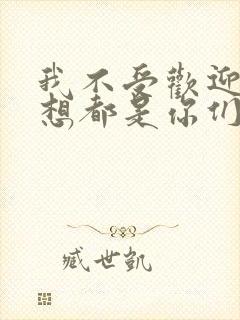 我不受歡迎
想都是你們
臧世凱